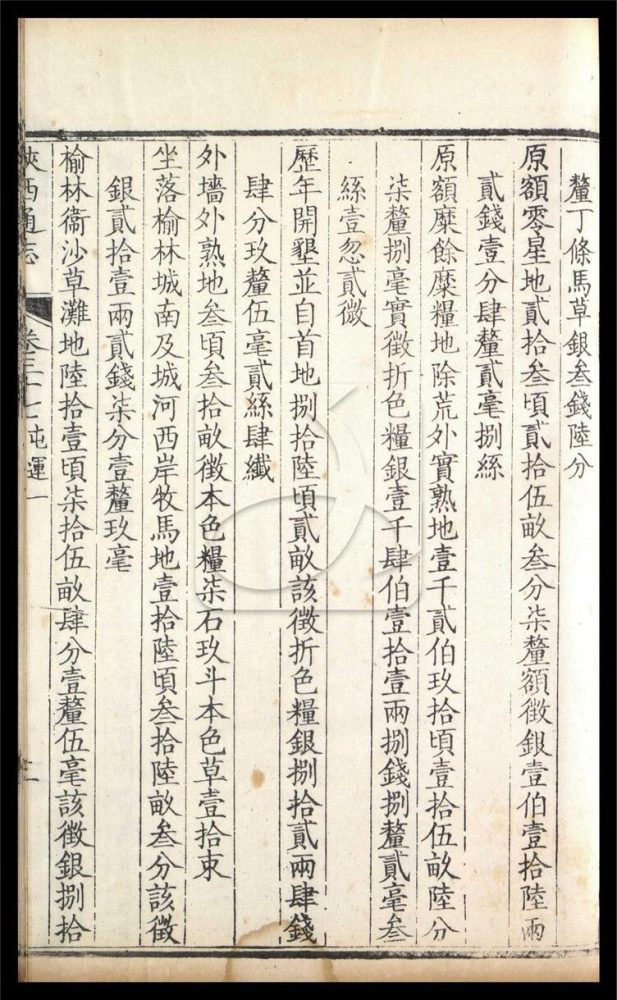 釐丁條馬草銀叁錢陸分
原額零星地貳拾叁頃貳拾伍畝叁分柒釐額徵銀壹伯壹拾陸兩
貳錢壹分肆釐貳毫捌絲
原額糜餘糜糧地除荒外實熟地壹千貳伯玖拾頃壹拾伍畝陸分
柒釐捌毫實徵折色糧銀壹千肆伯壹拾壹兩捌錢捌釐貳毫叁
絲壹忽貳微
歷年開墾並自首地捌拾陸頃貳畝該徵折色糧銀捌拾貳兩肆錢
肆分玖釐伍毫貳絲肆纖
外墻外熟地叁頃叁拾畝徵本色糧柒石玖斗本色草壹拾束
坐落榆林城南及城河西岸牧馬地壹拾陸頃叁拾陸畝叁分該徵
銀貳拾壹兩貳錢柒分壹釐玖毫
榆林衞沙草灘地陸拾壹頃柒拾伍畝肆分壹釐伍毫該徵銀捌拾
陜西通志 卷三十七 屯運一